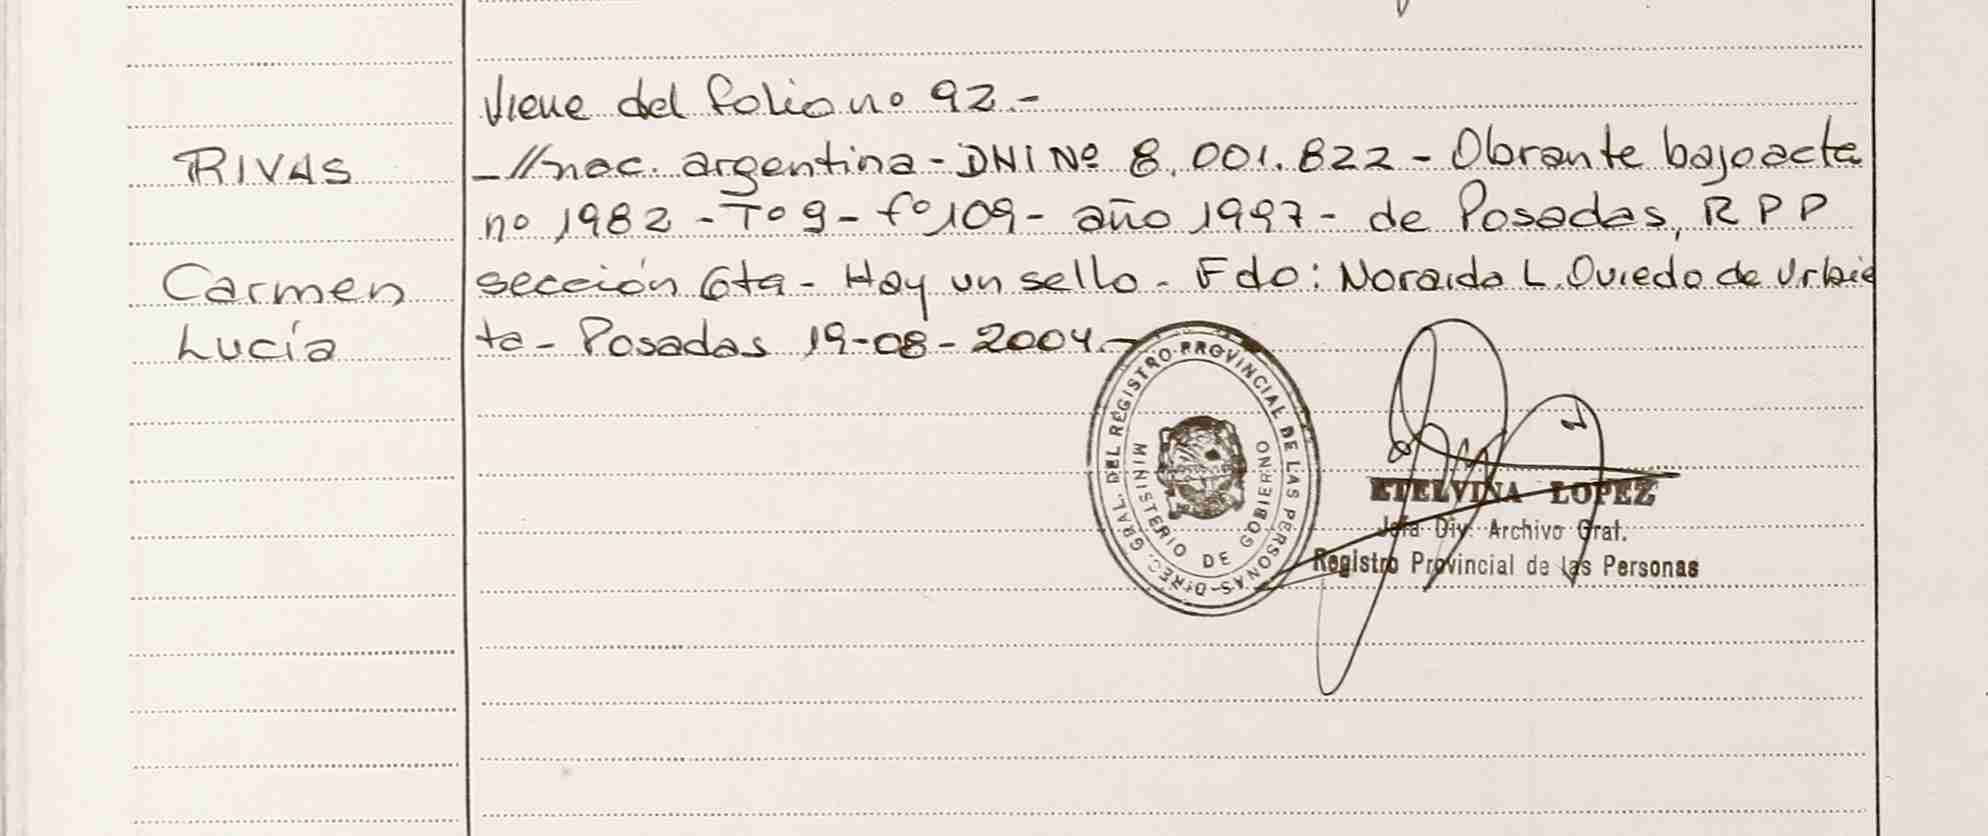 Viene del folio no 92.-
RIVAS
-//nac. argentina - DNI Nº 8.001.822 - Obrante bajo acta
nº 1982 - Tº 9 - fº 109 - año 1997 - de Posadas, RPP
Carmen
Lucía
sección 6ta - Hay un sello - Fdo: Noraida L. Oviedo de Urbie
ta - Posadas 19-08-2004.-
DIREC. GRAL. DEL REGISTRO PROVINCIAL DE LAS PERSONAS
MINISTERIO DE GOBIERNO
ETELVINA LOPEZ
Jefa Div. Archivo Gral.
Registro Provincial de las Personas